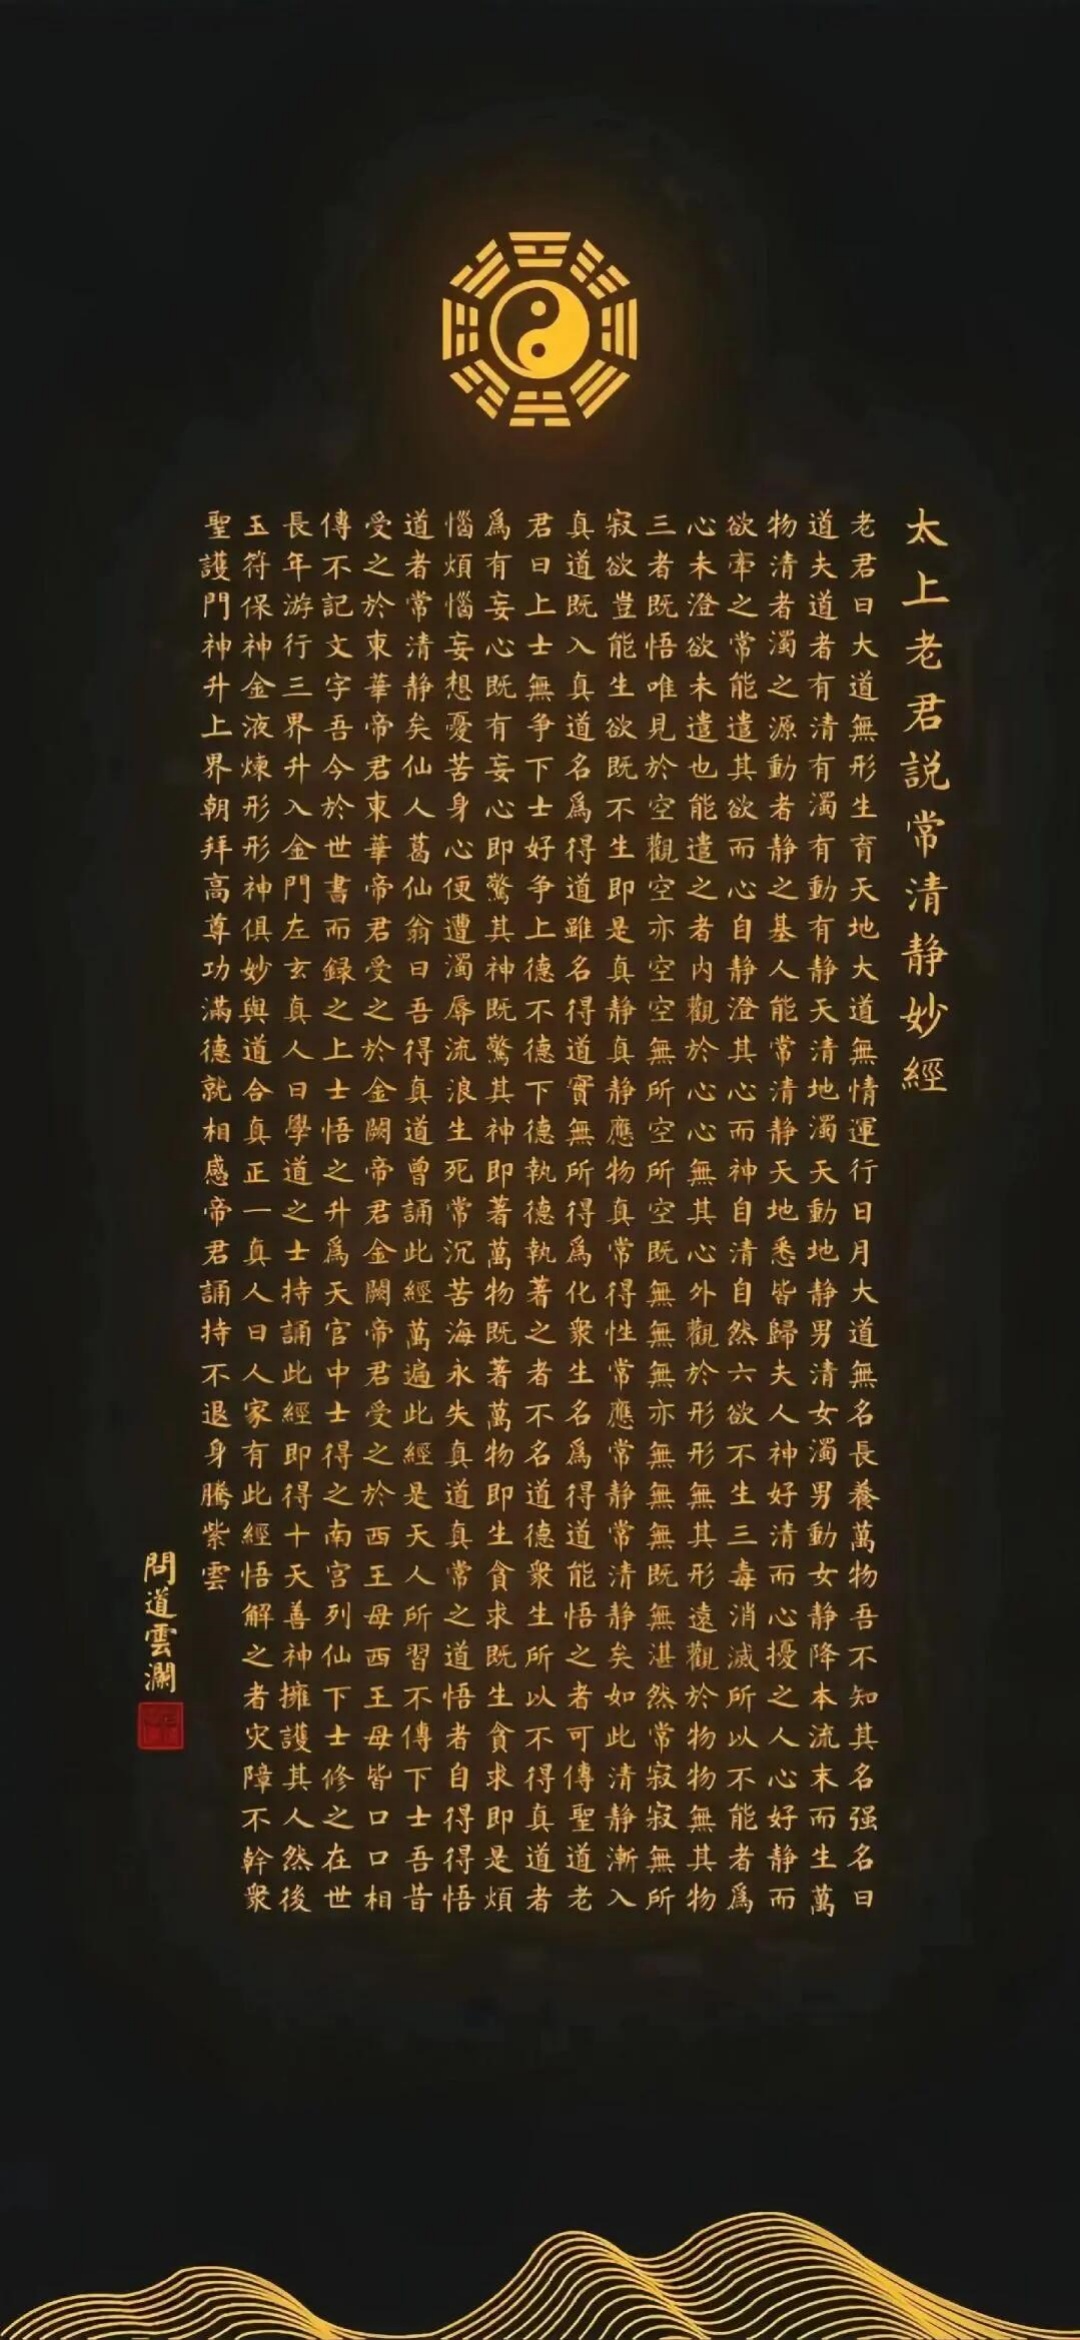 太上老君説常清静妙經
老君曰大道無形生育天地大道無情運行日月大道無名長養萬物吾不知其名强名曰
道夫道者有清有濁有動有静天清地濁天動地静男清女濁男動女静降本流末而生萬
物清者濁之源動者静之基人能常清静天地悉皆歸夫人神好清而心擾之人心好静而
欲牽之常能遣其欲而心自静澄其心而神自清自然六欲不生三毒消滅所以不能者爲
心未澄欲未遣也能遣之者内觀於心心無其心外觀於形形無其形遠觀於物物無其物
三者既悟唯見於空觀空亦空空無所空所空既無無無亦無無無既無湛然常寂寂無所
寂欲豈能生欲既不生即是真静真静應物真常得性常應常静常清静矣如此清静漸入
真道既入真道名爲得道雖名得道實無所得爲化衆生名爲得道能悟之者可傳聖道老
君曰上士無争下士好争上德不德下德執德執著之者不名道德衆生所以不得真道者
爲有妄心既有妄心即驚其神既驚其神即著萬物既著萬物即生貪求既生貪求即是煩
惱煩惱妄想憂苦身心便遭濁辱流浪生死常沉苦海永失真道真常之道悟者自得得悟
道者常清静矣仙人葛仙翁曰吾得真道曾誦此經萬遍此經是天人所習不傳下士吾昔
受之於東華帝君東華帝君受之於金闕帝君金闕帝君受之於西王母西王母皆口口相
傳不記文字吾今於世書而録之上士悟之升爲天官中士得之南宫列仙下士修之在世
長年游行三界升入金門左玄真人曰學道之士持誦此經即得十天善神擁護其人然後
玉符保神金液煉形形神俱妙與道合真正一真人曰人家有此經悟解之者灾障不幹衆
聖護門神升上界朝拜高尊功滿德就相感帝君誦持不退身騰紫雲
問道雲瀾